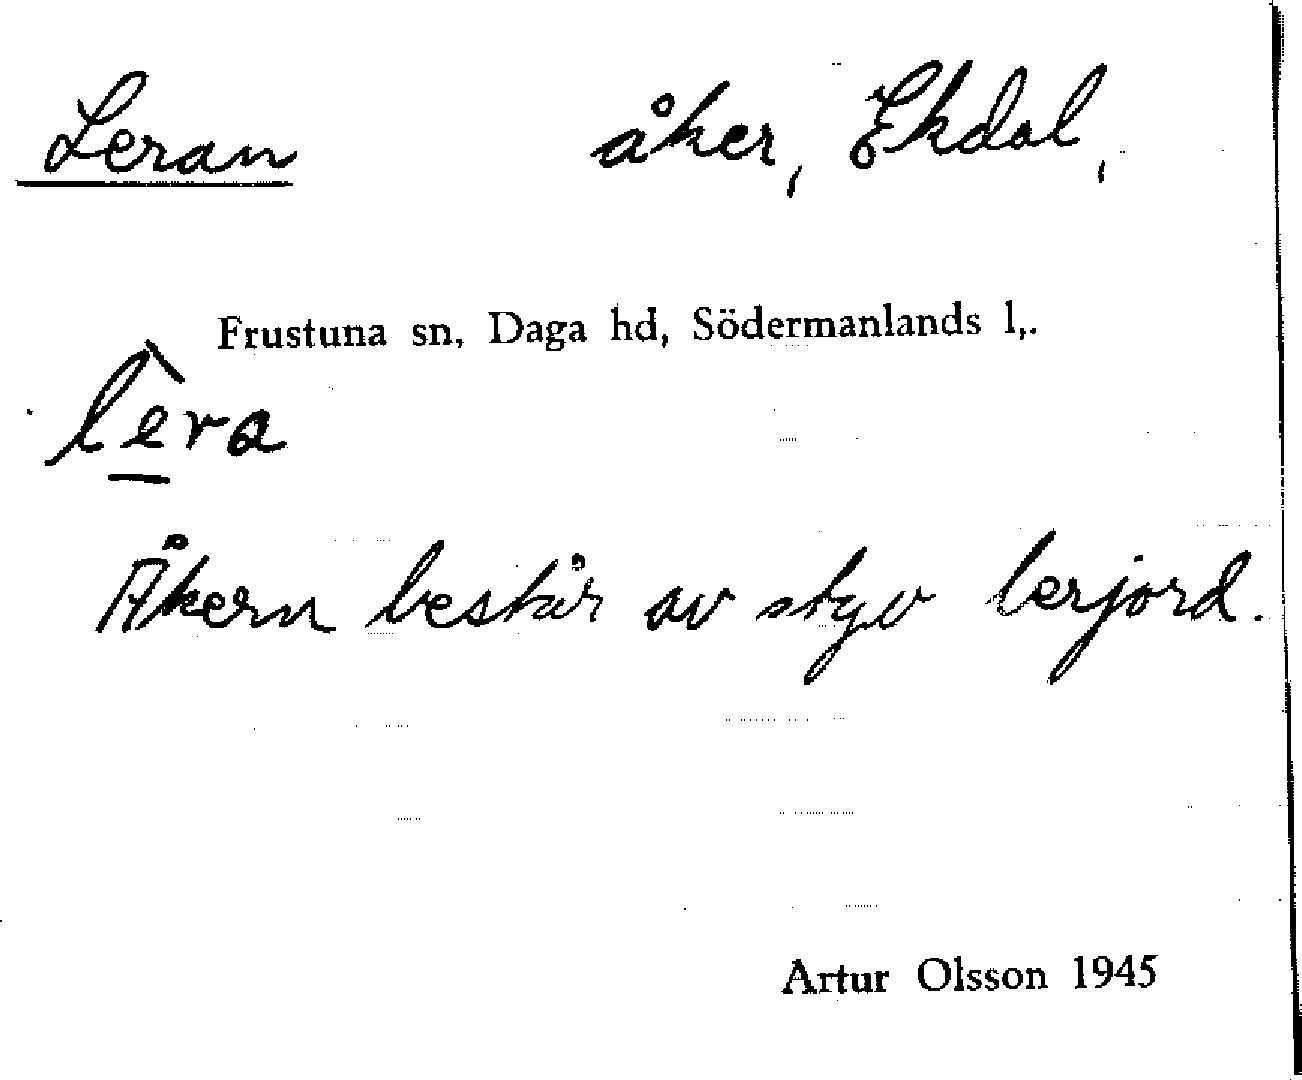 Leran åker, Ekdal,
Frustuna sn, Daga hd, Södermanlands l,.
lêra
Åkern består av styv lerjord.
Artur Olsson 1945